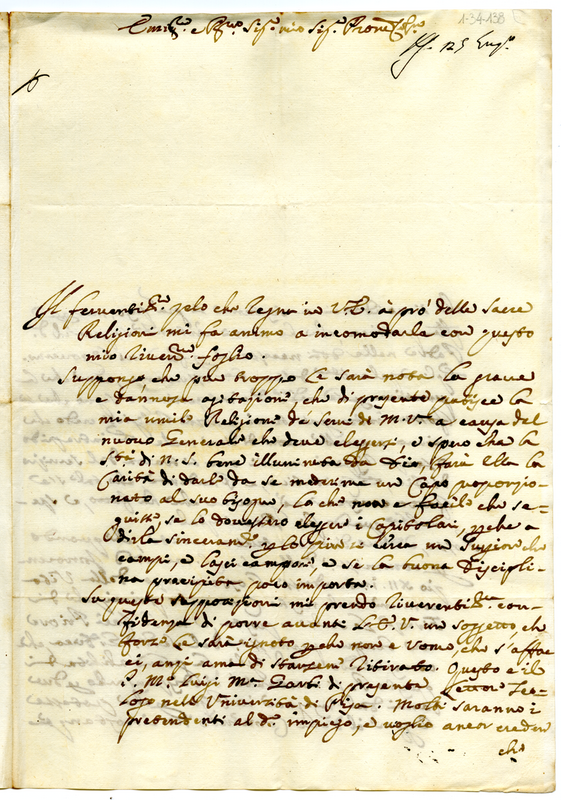 1-34-138
Em.mo e R.mo Sig.r mio Sig.r Pron.
Il ferventiss.mo zelo che regna in V.E. à prò delle Sacre
Religioni mi fa animo a incomodarla con questo
mio riverent.mo foglio.
Suppongo che pur troppo Le sarà nota la grave
e dannosa agitazione, che di presente patisce la
mia umile Religione de' Servi di M.V. a causa del
nuovo Generale che deve eleggersi, e spero che la
S.tà di N.S. bene illuminata da Dio, farà ella la
Carità di darle da se medesima un Capo proporzio-
nato al suo bisogno, lo che non è facile che se-
guisse, se lo dovessero eleggere i Capitolari, perche a
dirla sinceram.te si cerca un Superiore che
campi, e lasci campare, e se la buona Discipli-
na precipita poco importa.
Su queste supposizioni mi prendo riverentiss.ma con-
fidenza di porre avanti V. un soggetto che
forse Le sarà ignoto perche non è Uomo, che s'affac-
ci, anzi ama di starsene ritirato. Questo è il
P. M.ro Luigi M.a Garbi di presente Lettore Teo-
logo nella Università di Pisa. Molti saranno i
pretendenti al d.o impiego, e voglio ancor credere
che